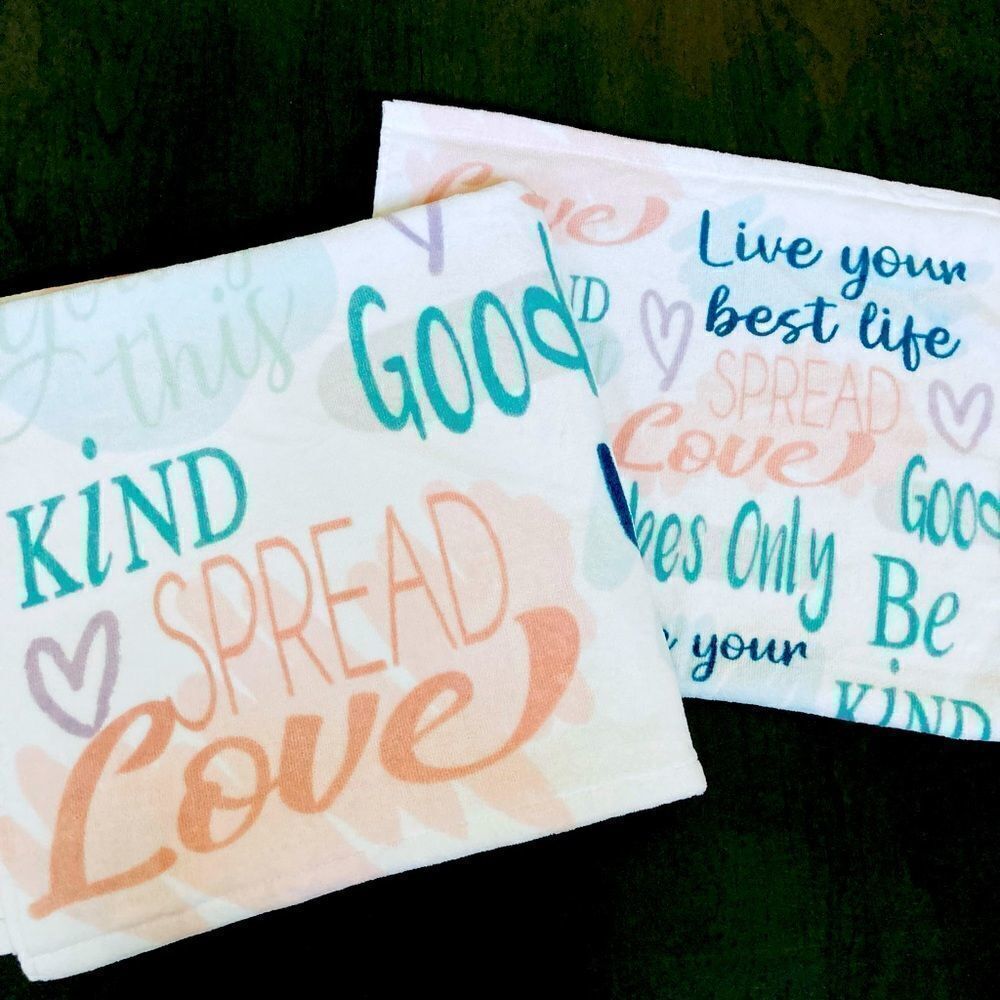 this
GOOD
KiND
SPREAD
Love
Live your
best life
SPREAD
Love
Only
GOOD
Be
your
KiND